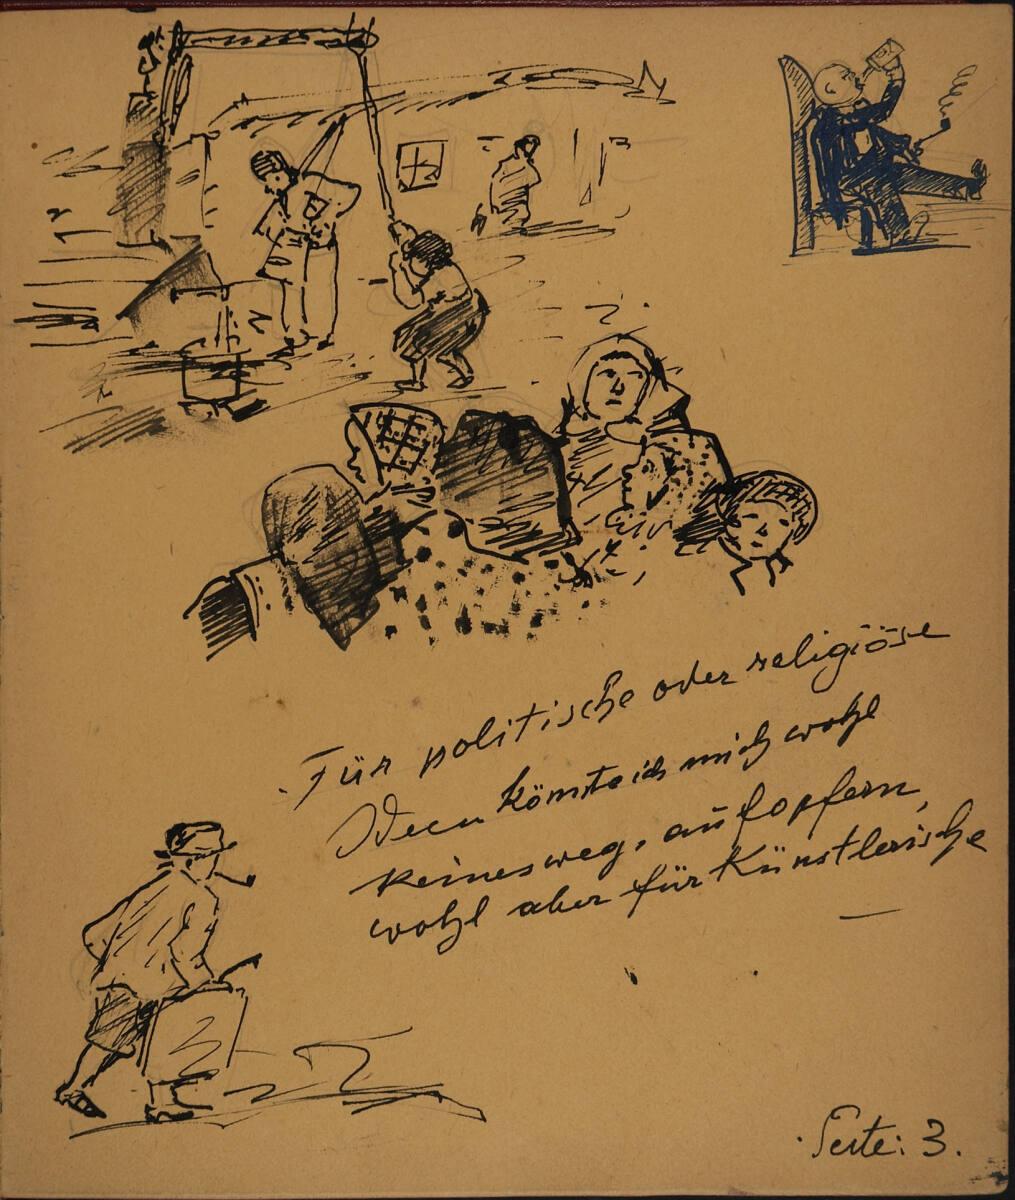 Für politische oder religiöse
Ideen könnte ich mich wohl
keinesweg, aufopfern,
wohl aber für Künstlerische
Seite: 3.